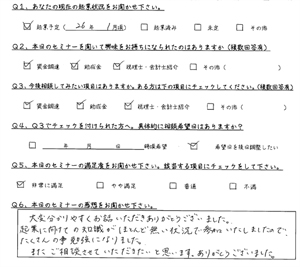 Q1、あなたの現在の起業状況をお聞かせ下さい。
☑ 起業予定（ 26 年 1 月頃） □ 起業済み □ 未定 □ その他
Q2、本日のセミナーを聞いて興味をお持ちになられたのはありますか（複数回答可）
☑ 資金調達 ☑ 助成金 ☑ 税理士・会計士紹介 □ その他（ ）
Q3、今後相談してみたい項目はありますか、ある方は下の項目にチェックしてください。（複数回答可）
☑ 資金調達 ☑ 助成金 ☑ 税理士・会計士紹介 □ その他（ ）
Q4、Q3でチェックを付けられた方へ、具体的に相談希望日はありますか？
□ 年 月 日 時頃希望 ☑ 希望日を後日調整したい
Q5、本日のセミナーの満足度をお聞かせ下さい。該当する項目にチェックをして下さい。
☑ 非常に満足 □ やや満足 □ 普通 □ 不満
Q6、本日のセミナーの感想をお聞かせ下さい。
大変分かりやすくお話いただきありがとうございました。
起業に向けての知識がほとんど無い状況で参加いたしましたので、
たくさんの事勉強になりました。
またご相談させていただきたいと思います、ありがとうございました。